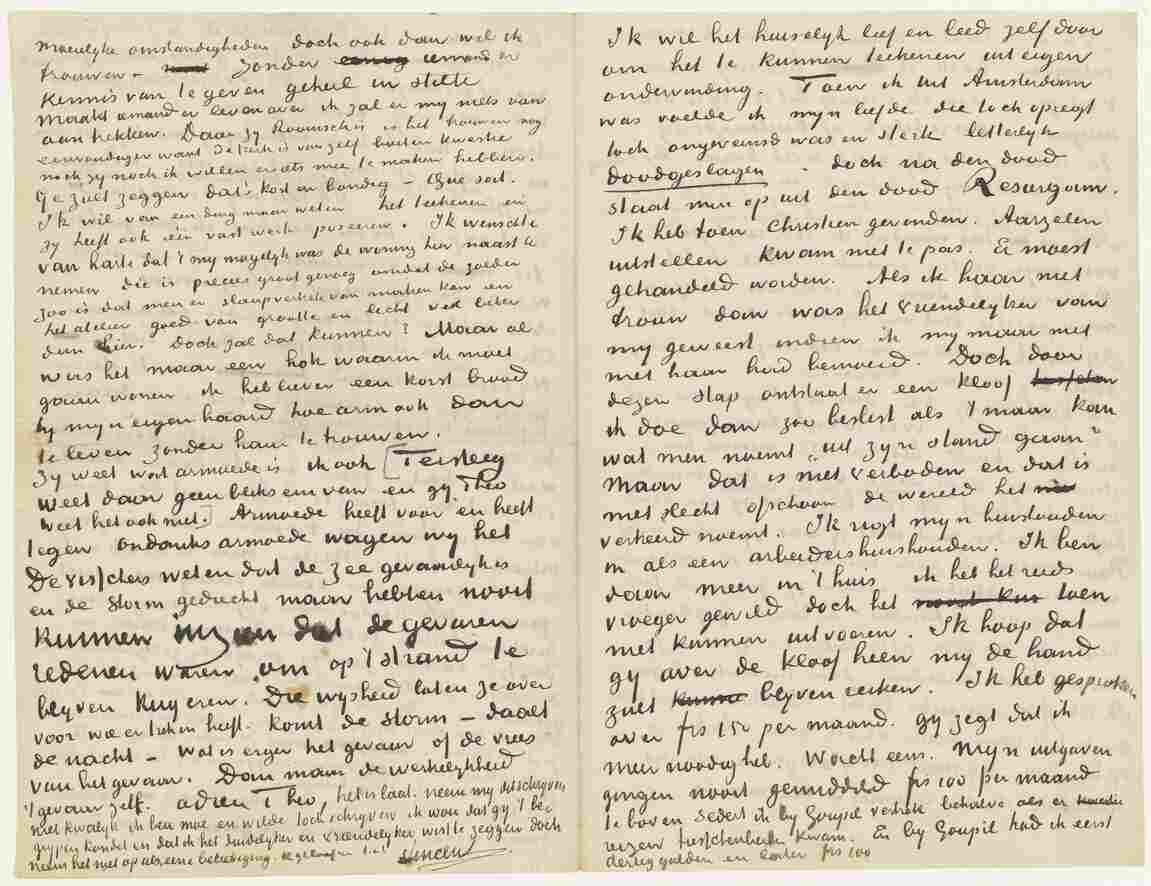 moeielyke omstandigheden doch ook dan wil ik
trouwen – zonder iemand er
kennis van te geven geheel in stilte
Maakt iemand er leven over ik zal er my niets van
aantrekken. Daar zy Roomsch is is het trouwen nog
eenvoudiger want de kerk is van zelf buiten kwestie
noch zy noch ik willen er iets mee te maken hebben.
Ge zult zeggen dat's kort en bondig – Que soit.
Ik wil van een ding maar weten het teekenen en
zy heeft ook één vast werk poseeren. Ik wenschte
van harte dat 't my mogelyk was de woning hier naast te
nemen die is precies groot genoeg omdat de zolder
zoo is dat men er slaapvertrek van maken kan en
het atelier goed van grootte en licht veel beter
dan hier. Doch zal dat kunnen? Maar al
was het maar een hok waarin ik moet
gaan wonen ik heb liever een korst brood
by myn eigen haard hoe arm ook dan
te leven zonder haar te trouwen.
Zy weet wat armoede is ik ook [Tersteeg
weet daar geen bliksem van en gy Theo
weet het ook niet.] Armoede heeft voor en heeft
tegen ondanks armoede wagen wy het
De visschers weten dat de zee gevaarlyk is
en de storm geducht maar hebben nooit
kunnen inzien dat de gevaren
redenen waren om op 't strand te
blyven kuyeren. Die wysheid laten ze over
voor wie er trek in heeft. Komt de storm – daalt
de nacht – wat is erger het gevaar of de vrees
van het gevaar. Dan maar de werkelykheid
't gevaar zelf. adieu Theo, het is laat. neem my dit schryven
niet kwalyk ik ben moe en wilde toch schryven ik wou dat gy 't be-
grypen kondet en dat ik het duidelyker en vriendelyker wist te zeggen doch
neem het niet op als eene beleediging. & geloof me t. à t. Vincent
Ik wil het huiselyk lief en leed zelf door
om het te kunnen teekenen uit eigen
ondervinding. Toen ik uit Amsterdam
was voelde ik myn liefde die toch opregt
toch ongeveinsd was en sterk letterlyk
doodgeslagen – doch na den dood
staat men op uit den dood Resurgam.
Ik heb toen Christien gevonden. Aarzelen
uitstellen kwam niet te pas. Er moest
gehandeld worden. Als ik haar niet
trouw dan was het vriendelyker van
my geweest indien ik my maar niet
met haar had bemoeid. Doch door
dezen stap ontstaat er een kloof
ik doe dan zoo beslist als 't maar kan
wat men noemt „uit zyn stand gaan”
Maar dat is niet verboden en dat is
niet slecht ofschoon de wereld het
verkeerd noemt. Ik rigt myn huishouden
in als een arbeidershuishouden. Ik ben
daar meer in 't huis ik heb het reeds
vroeger gewild doch het toen
niet kunnen uitvoeren. Ik hoop dat
gy over de kloof heen my de hand
zult blyven reiken. Ik heb gesproken
over frs 150 per maand. gy zegt dat ik
meer noodig heb. Wacht eens. Myn uitgaven
gingen nooit gemiddeld frs 100 per maand
te boven sedert ik by Goupil vertrok behalve als er
reizen tusschenbeiden kwam. En by Goupil had ik eerst
dertig gulden en later frs 100